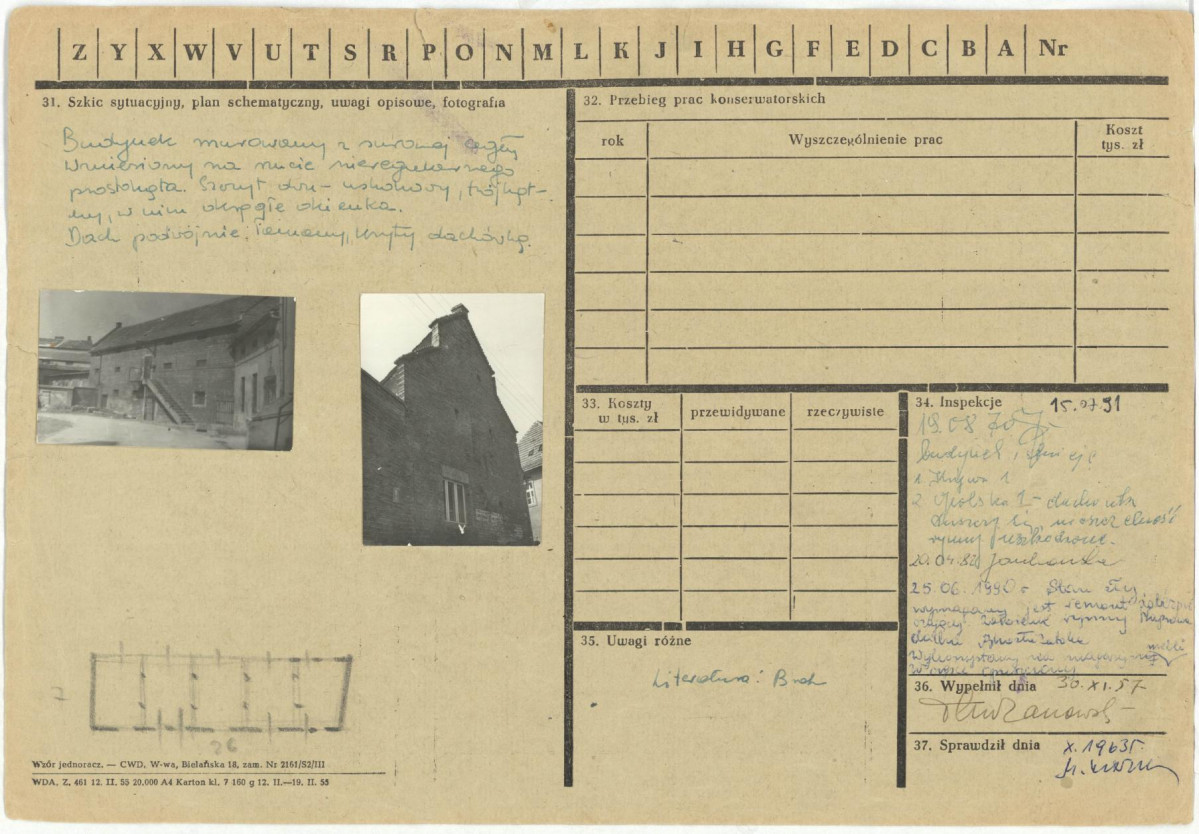 Z Y X W V U T S R P O N M L K J I H G F E D C B A Nr
31. Szkic sytuacyjny, plan schematyczny, uwagi opisowe, fotografia
Budynek murowany z surowej cegły
wzniesiony na rzucie nieregularnego
prostokąta. Szczyt dwu-uskokowy, trójkąt-
ny, w nim okrągłe okienka.
Dach podwójnie łamany, kryty dachówką.
7
26
Wzór jednoracz. — CWD, W-wa, Bielańska 18, zam. Nr 2161/S2/III
WDA. Z. 461 12. II. 55 20.000 A4 Karton kl. 7 160 g 12. II.—19. II. 55
32. Przebieg prac konserwatorskich
rok
Wyszczególnienie prac
Koszt
tys. zł
33. Koszty
w tys. zł
przewidywane
rzeczywiste
34. Inspekcje 15.07.91
19.08
budynek istnieje
1
2 dach
rynny uszkodzone.
20.04.
25.06.1990 r Stan zły,
wymagany jest remont
rynny
36. Wypełnił dnia 30.XI.57
37. Sprawdził dnia X.1963r.
35. Uwagi różne
Literatura: